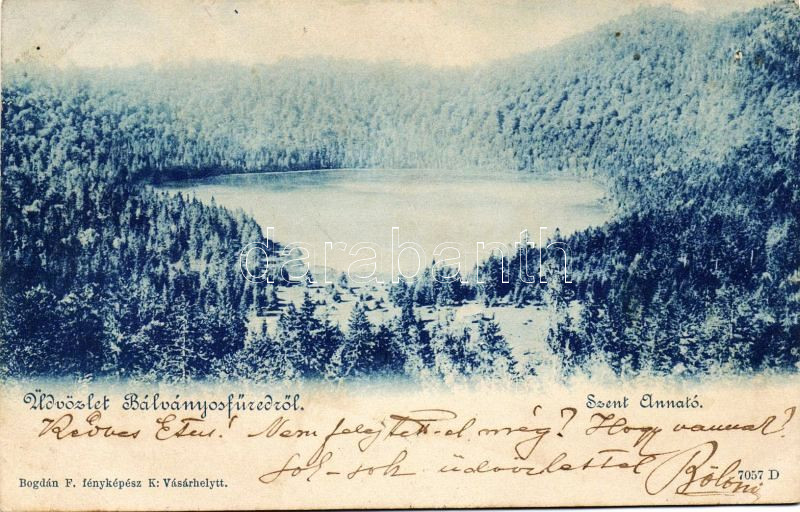 darabanth
Üdvözlet Bálványosfüredről.
Szent Annató.
Kedves Etus! Nem felejtett-el még? Hogy vannak?
sok-sok üdvözlettel Bölöni
Bogdán F. fényképész K: Vásárhelytt.
7057 D